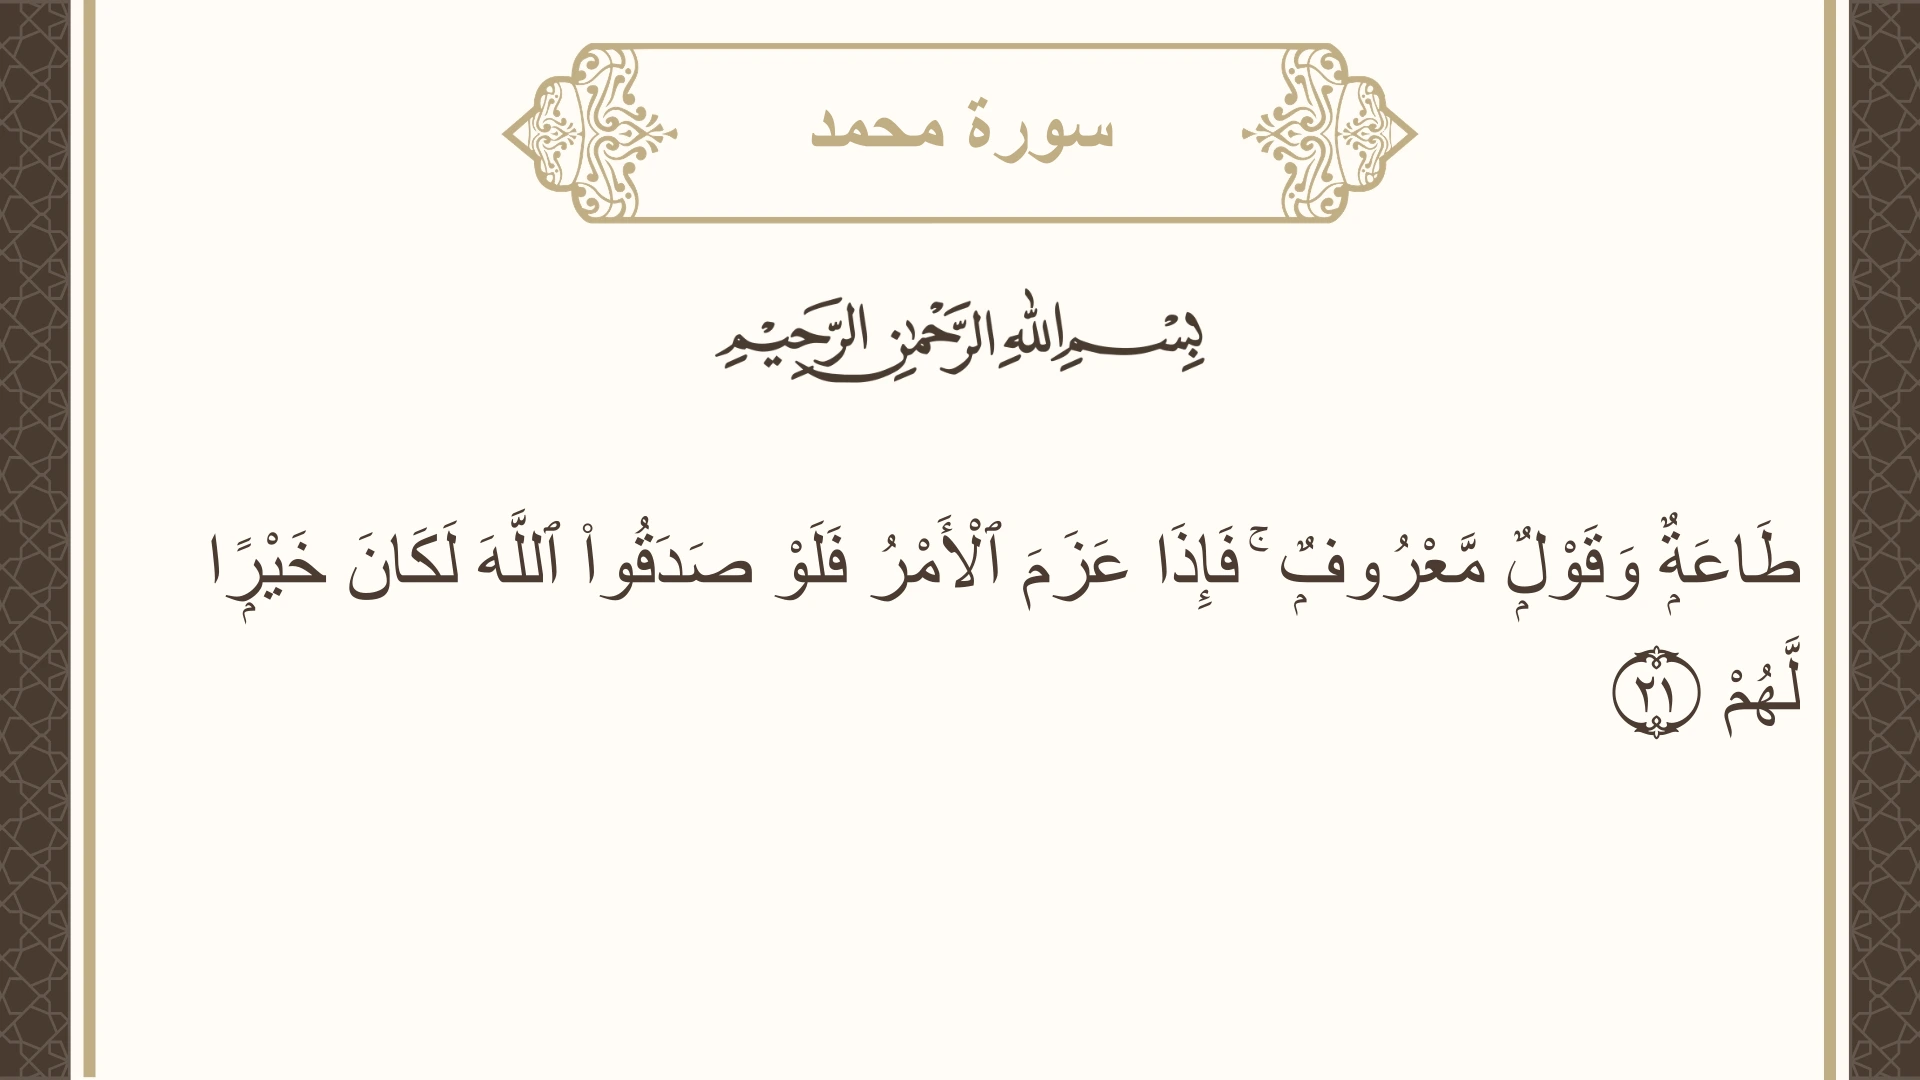 سورة محمد
بِسْمِ اللهِ الرَّحْمٰنِ الرَّحِيْمِ
طَاعَةٌۭ وَقَوْلٌۭ مَّعْرُوفٌۭ ۚ فَإِذَا عَزَمَ ٱلْأَمْرُ فَلَوْ صَدَقُوا۟ ٱللَّهَ لَكَانَ خَيْرًۭا
لَّهُمْ ٢١